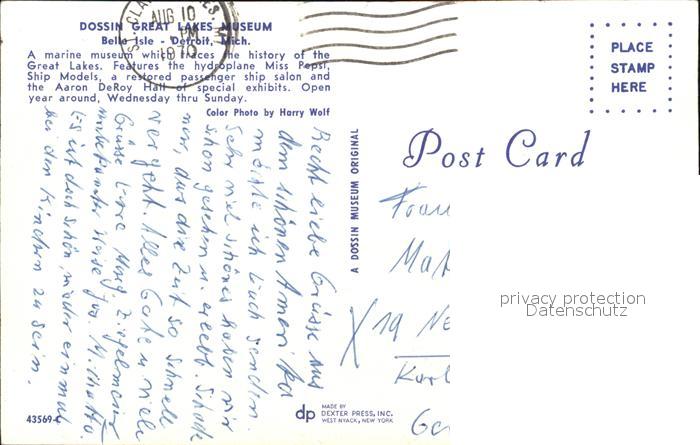 DOSSIN GREAT LAKES MUSEUM
Belle Isle - Detroit, Mich.
A marine museum which traces the history of the
Great Lakes. Features the hydroplane Miss Pepsi,
Ship Models, a restored passenger ship salon and
the Aaron DeRoy Hall of special exhibits. Open
year around, Wednesday thru Sunday.
Color Photo by Harry Wolf
AUG 10
PM
1970
PLACE
STAMP
HERE
Post Card
A DOSSIN MUSEUM ORIGINAL
Recht liebe Grüsse aus
dem schönen Amerika
möchte ich Euch senden.
Sehr viel schönes haben wir
schon gesehen u. erlebt. Schade
nur, das die Zeit so schnell
vergeht. Alles Gute u. viele
Grüsse
Es ist doch schön, wieder einmal
bei den Kindern zu sein.
Frau
19
privacy protection
Datenschutz
43569-C
dp
MADE BY
DEXTER PRESS, INC.
WEST NYACK, NEW YORK